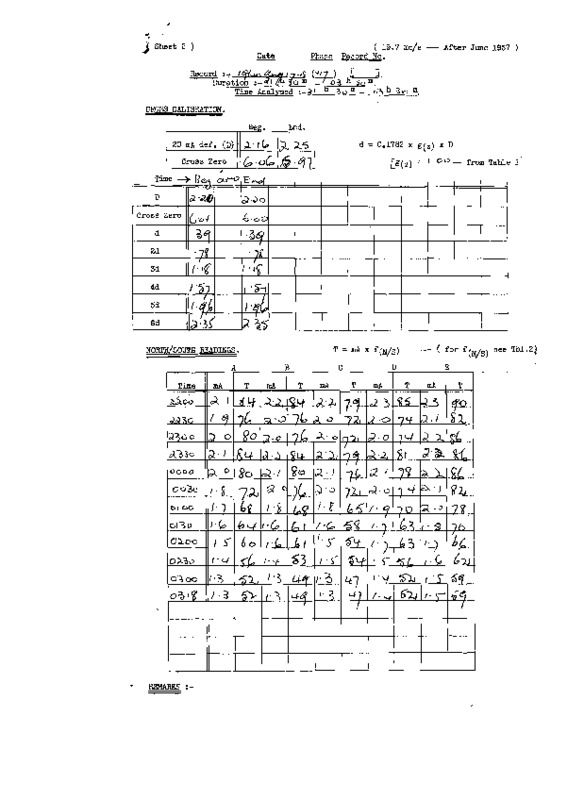 ( Sheet 2 ) ( 19.7 Mc/s — After June 1957 )
Date Phase Record No.
Record :-
Duration :-
Time Analysed :-
CROSS CALIBRATION.
Beg. End.
20 mA def. (D) 2.16 2.25 d = 0.1782 x g(z) x D
Cross Zero 6.06 5.97 — from Table
Time → Beg and End
D 2.20 2.20
Cross Zero 6.01 6.00
d 39 .39
2d .78 .78
3d 1.18 1.18
4d 1.57 1.57
5d 1.96 1.96
6d 2.35 2.35
NORTH/SOUTH READINGS. T = mA x f(N/S) -- ( for f(N/S) see Tbl.2)
A B C D E
Time mA T mA T mA T mA T mA T
2200 2.1 84 2.2 84 2.2 79 2.3 85 2.3 90
2230 1.9 76 2.0 76 2.0 72 2.0 74 2.1 82
2300 2.0 80 2.0 76 2.0 72 2.0 74 2.2 86
2330 2.1 84 2.2 84 2.2 79 2.2 81 2.2 86
0000 2.0 80 2.1 80 2.1 76 2.1 78 2.2 86
0030 1.8 72 2.0 76 2.0 72 2.0 74 2.1 82
0100 1.7 68 1.8 68 1.8 65 1.9 70 2.0 78
0130 1.6 64 1.6 61 1.6 58 1.7 63 1.8 70
0200 1.5 60 1.6 61 1.5 54 1.7 63 1.7 66
0230 1.4 56 1.4 53 1.5 54 1.5 56 1.6 62
0300 1.3 52 1.3 49 1.3 47 1.4 52 1.5 59
0318 1.3 52 1.3 49 1.3 47 1.4 52 1.5 59
REMARKS :-